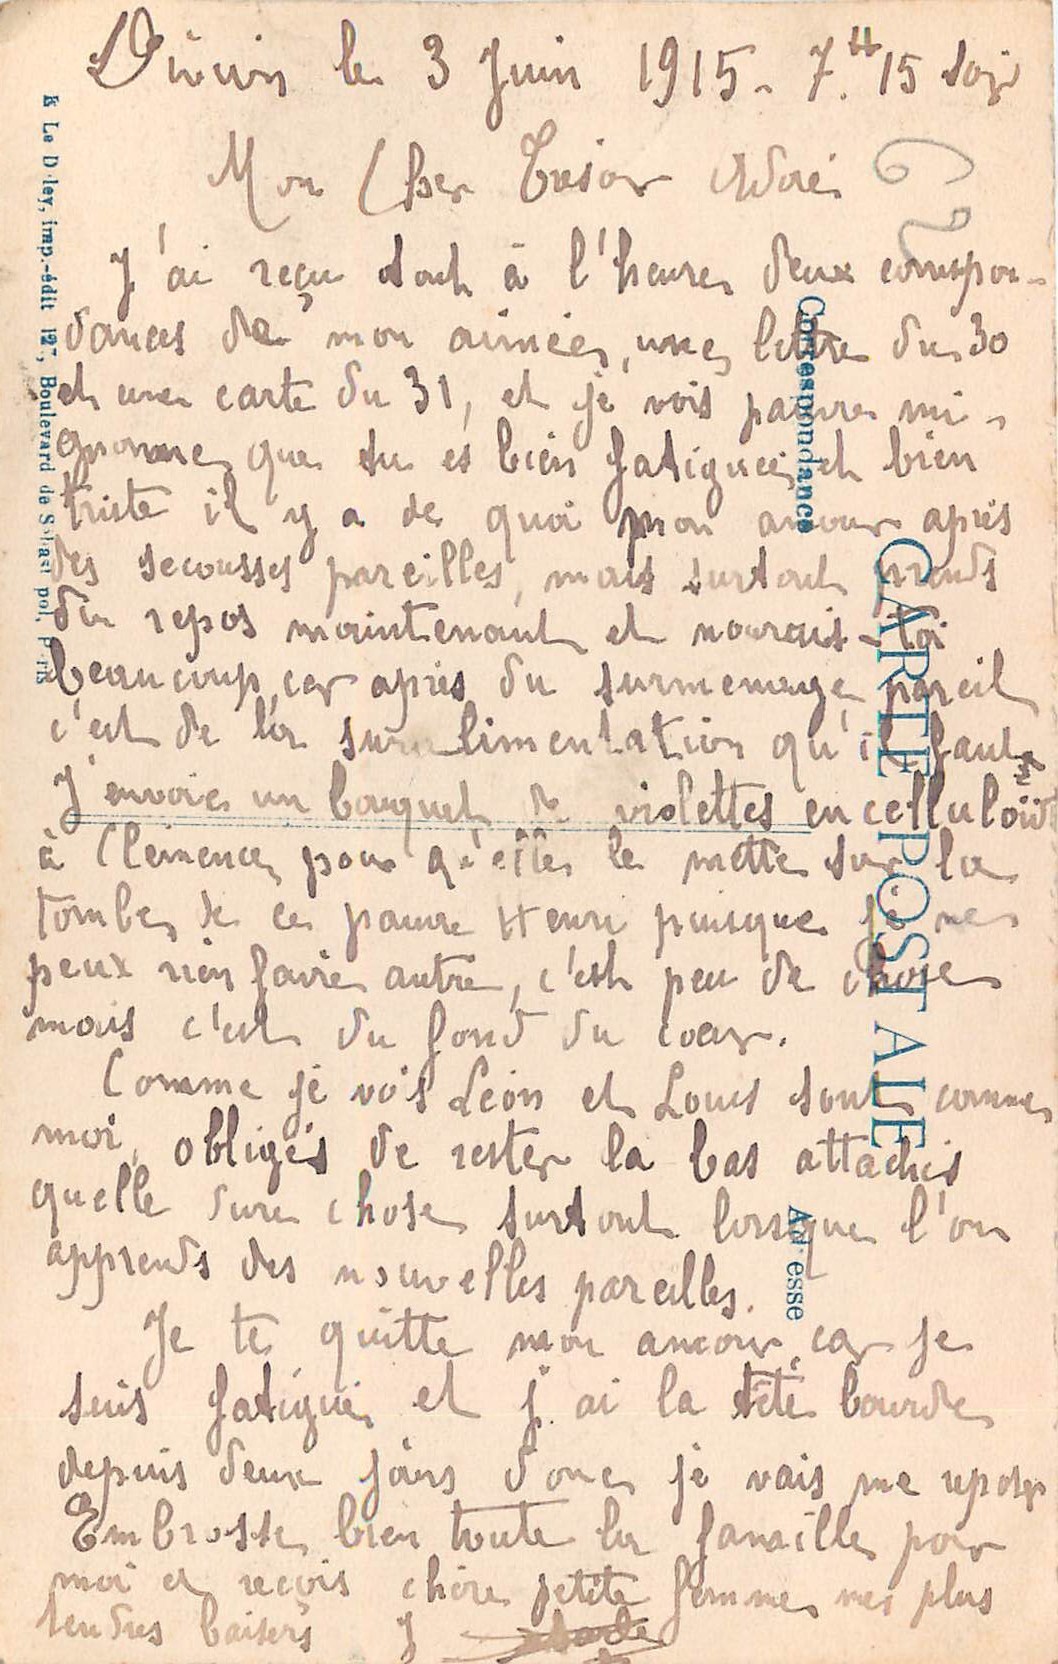 le 3 Juin 1915. 7.H 15 soir
Mon Cher Trésor Adoré
J'ai reçu tout à l'heure deux correspon-
dances de mon aimée, une lettre du 30
et une carte du 31, et je vois pauvre mi-
gnonne que tu es bien fatiguée et bien
triste il y a de quoi mon amour après
des secousses pareilles, mais surtout prends
du repos maintenant et nourris-toi
beaucoup car après du surmenage pareil
c'est de la suralimentation qu'il faut
J'envoie un bouquet de violettes en celluloïd
à Clémence pour qu'elle le mette sur la
tombe de ce pauvre Henri puisque je ne
peux rien faire autre, c'est peu de chose
mais c'est du fond du coeur.
Comme je vois Léon et Louis sont comme
moi, obligés de rester la bas attachés
quelle dure chose surtout lorsque l'on
apprends des nouvelles pareilles.
Je te quitte mon amour, car je
suis fatigué et j'ai la tête lourde
depuis deux jours donc je vais me reposer
Embrasse bien toute la famille pour
moi et reçois chère petite femme mes plus
tendres baisers
Correspondance
CARTE POSTALE
Adresse
Le Deley, imp.-édit 127, Boulevard de Sébastopol, Paris